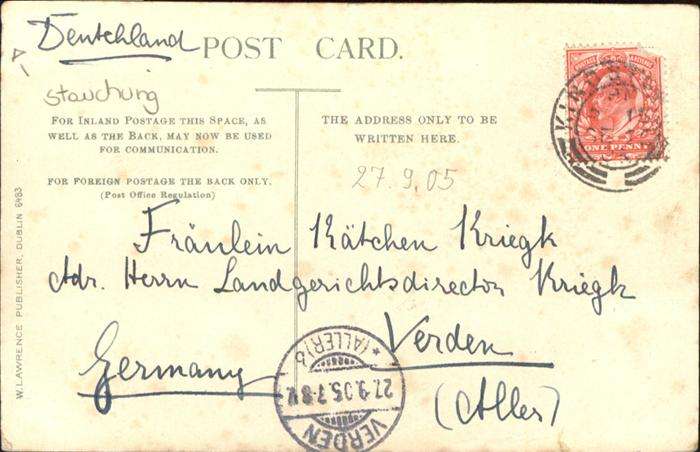 Deutchland
POST CARD.
stauchung
FOR INLAND POSTAGE THIS SPACE, AS
WELL AS THE BACK, MAY NOW BE USED
FOR COMMUNICATION.
FOR FOREIGN POSTAGE THE BACK ONLY.
(Post Office Regulation)
THE ADDRESS ONLY TO BE
WRITTEN HERE.
ONE PENNY
27.9.05
Fräulein Kätchen Kriegk
Adr. Herrn Landgerichtsdirector Kriegk
Verden
Germany
(Aller)
W. LAWRENCE PUBLISHER, DUBLIN 6983
*(ALLER) b
27.9.05.7-8V.
VERDEN